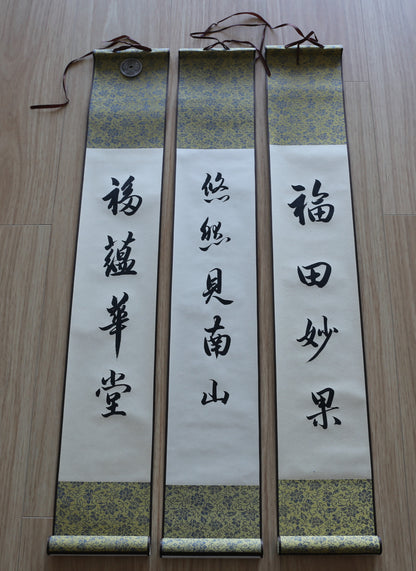 福田妙果
悠然見南山
福蘊華堂